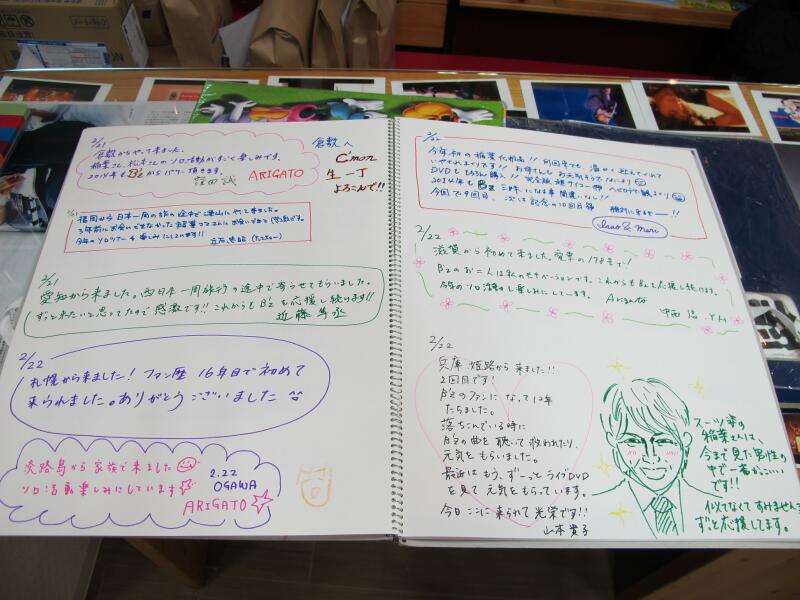 2/21
倉敷からやって来ました。
稲葉さん、松本さんのソロ活動がすごく楽しみです。
2014年もB'zからパワー頂きます。
窪田誠 ARIGATO
倉敷へ
C'mon
生一丁
よろこんで!!
2/21
福岡から日本一周の旅の途中で津山にやって来ました。
今年のソロツアーも楽しみにしています!!
2/21
愛知から来ました。西日本一周旅行の途中で寄らせてもらいました。
ずっと来たいと思ってたので感激です!! これからもB'zを応援し続けます!!
近藤
2/22
札幌から来ました! ファン歴16年目で初めて
来られました。ありがとうございました
淡路島から家族で来ました
ソロ活動楽しみにしています
2.22
OGAWA
ARIGATO
2/22
今年初の稲葉化粧品!! 何回来ても、温かく迎えてくれて
DVDももちろん購入!!
2014年もB'z
今回で9回目、次は記念の10回目
Isao & Mari
2/22
滋賀から初めて来ました。愛車の178まで!
B'zのお二人は私のモチベーションです。これからもB'zを応援し続けます。
今年のソロ活動も楽しみにしています。 Arigato
中西 Y.H
2/22
兵庫 姫路から来ました!!
2回目です!
B'zのファンになって12年
たちました。
落ちこんでいる時に
B'zの曲を聴いて救われたり、
元気をもらいました。
最近はもう、ずーっとライブDVD
を見て元気をもらっています。
今日ここに来られて光栄です!!
山本貴子
スーツ姿の
稲葉さんは、
今まで見た男性の
中で一番かっこいい
です!!
似てなくてすみません
ずっと応援してます。